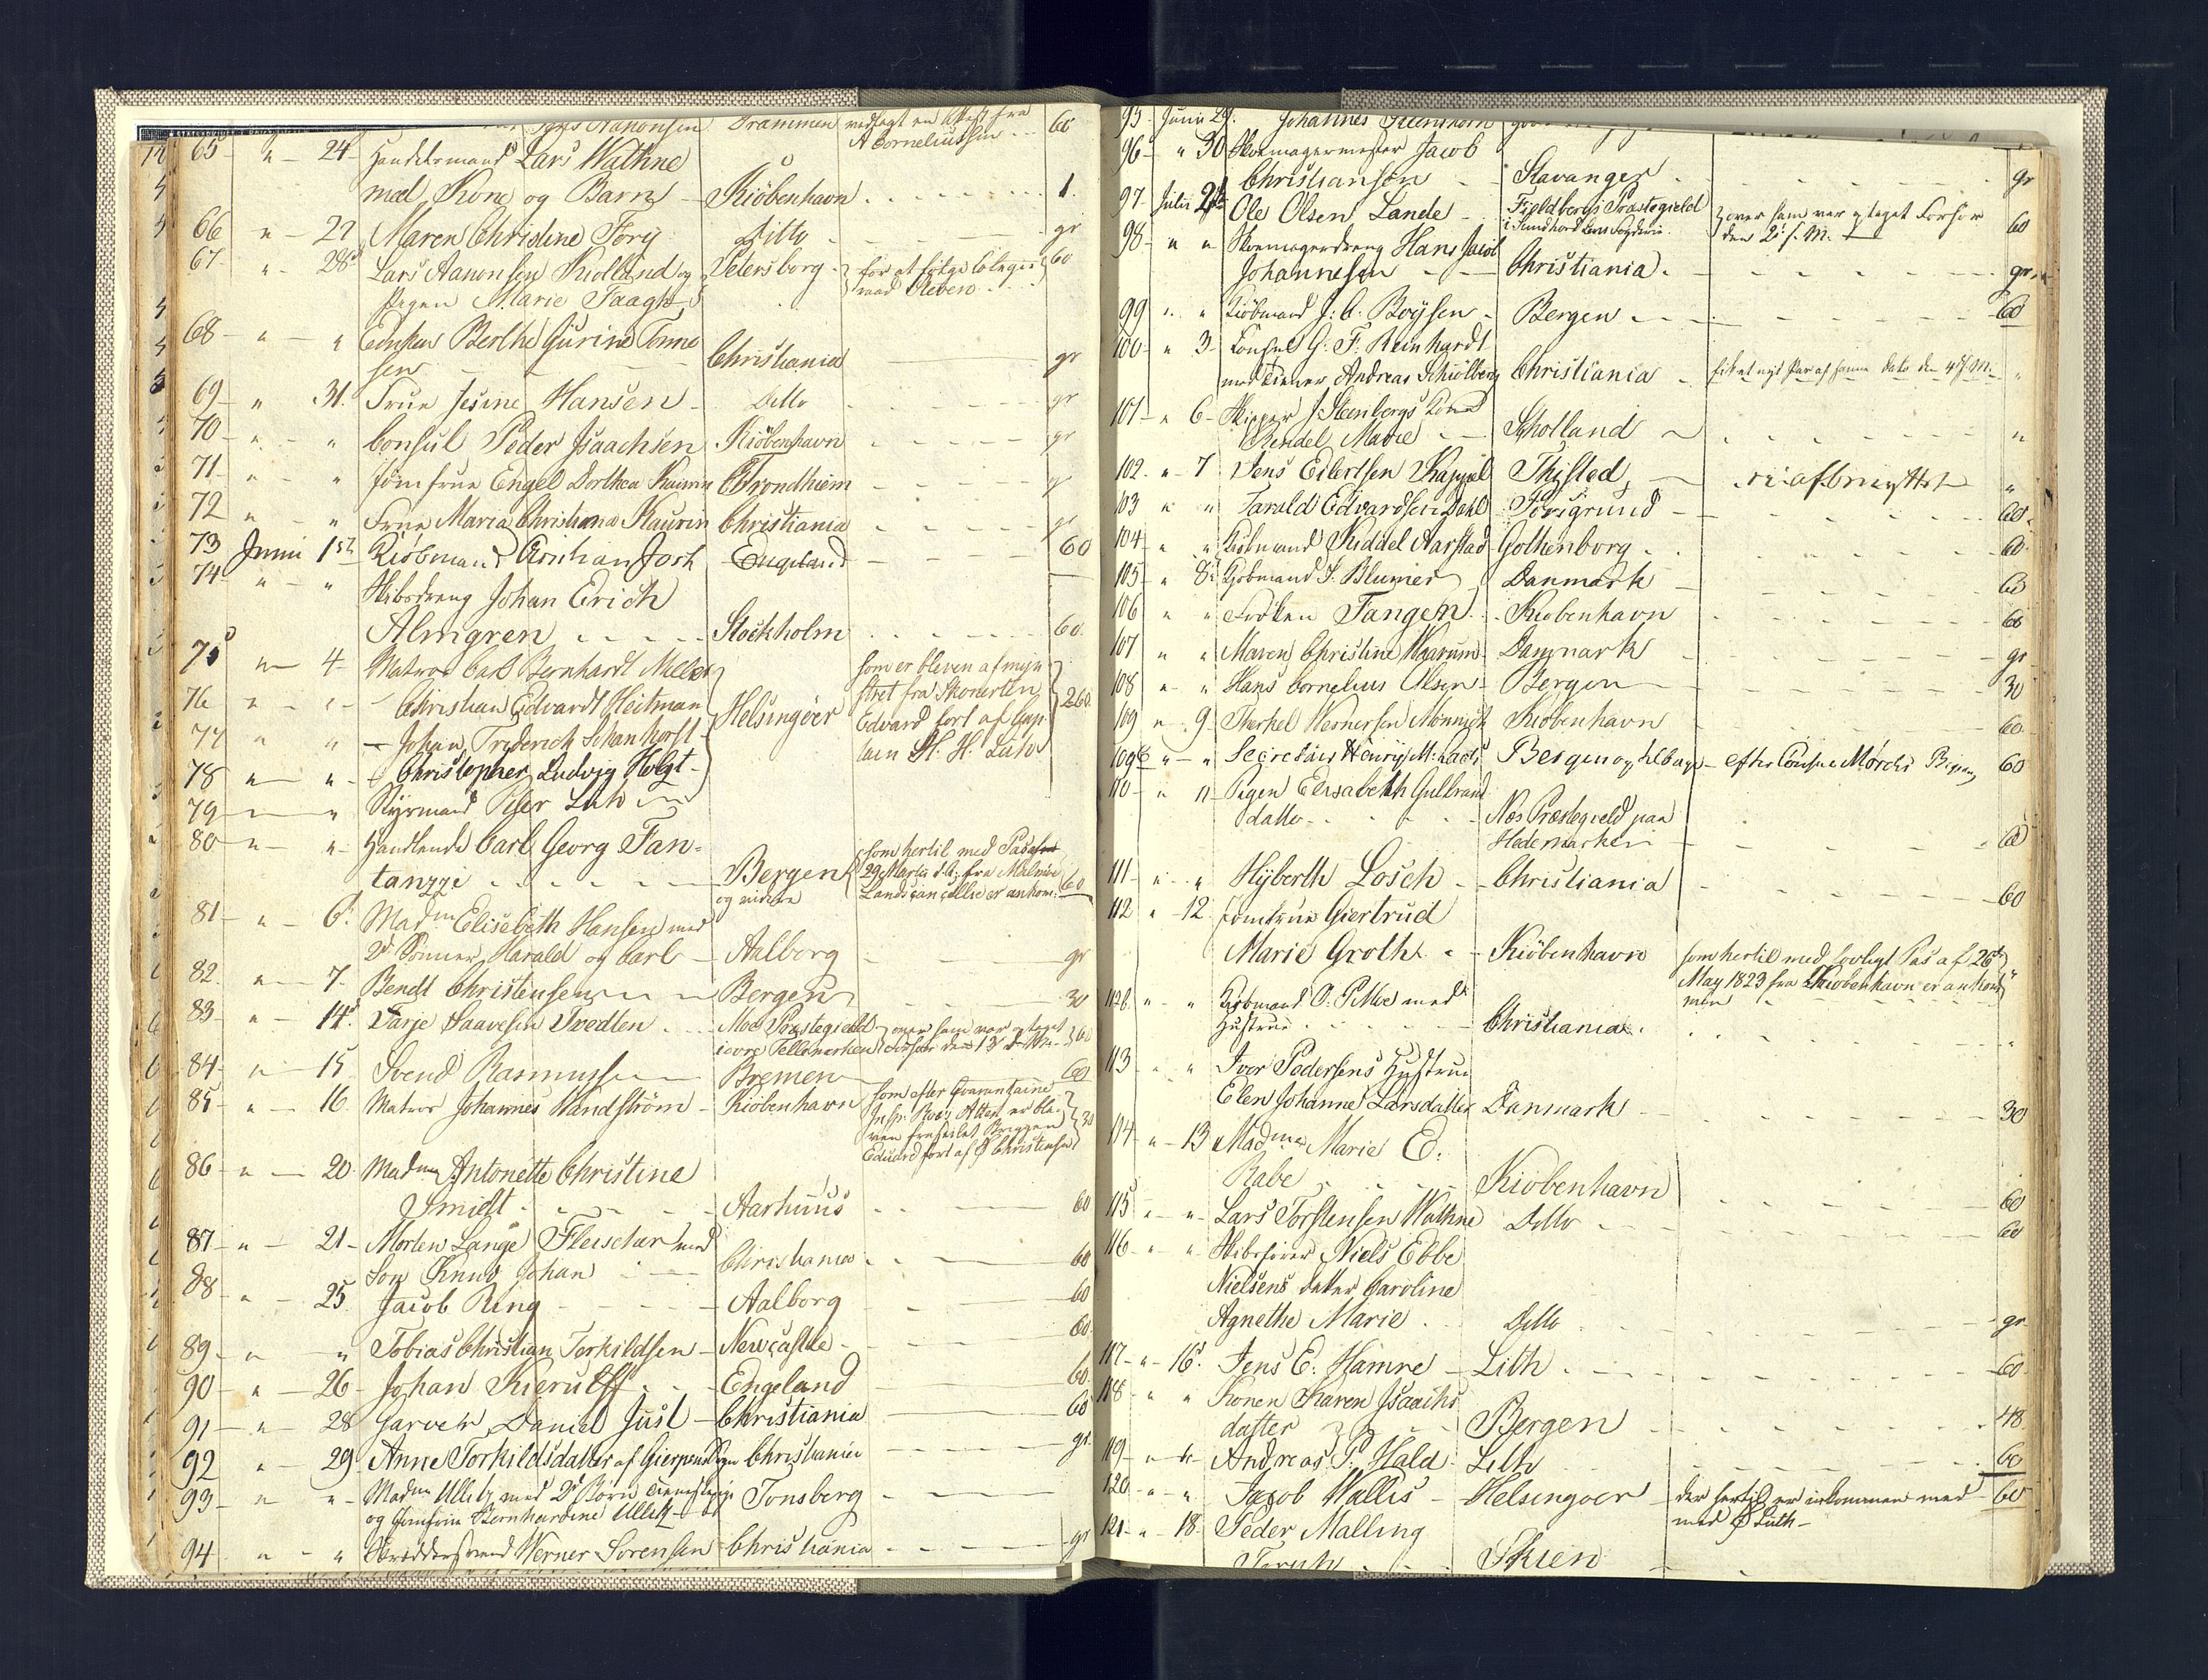 Aanonsen Drammen 60
A Corneliussen
65 " 24 Handelsmand Lars Wathne
med Kone og Barn Kiöbenhavn 1.
66 " 27 Maren Christine Tory Ditto gr
67 " 28 Lars Aanonsen og Petersborg for at følge 60
Pigen Marie
68 " " Enken Berthe Gurine Tönne
sen Christiania gr
69 " 31. Frue Jesine Hansen Ditto gr
70 " " Consul Peder Isaachsen Kiöbenhavn gr
71 " " Jomfrue Engel Dorthea Kaurin Trondhiem gr
72 " " Frue Maria Christiana Kaurin Christiania gr
73 Junii 1st Kiöbmand Christian Engeland 60
74 " " Skibsdreng Johan Erich
Almgren Stockholm 60
75 " 4 Matros Carl Bernhardt som er bleven afmyn
76 " " Christian Edvardt Heitman Helsingöer stret fra Skonerten 260
77 " " Johan Edvard fört af Cap
78 " " Christopher Ludvig Holst tain H. H. Lüth
79 " Styrmand Peter Lüth
80 " " Handlende Carl Georg Fan- som hertil med Pas
tanggi Bergen 29 Martii d. A. fra Malmöe 60
og videre er ankom:
81 " 6 Madm Elisebeth Hansen med
2de Sönner Harald og Carl Aalborg gr
82 " 7 Bendt Christensen Bergen 30
83 " 14 Tarje Saavesen Tvedten Moe Præstegield over ham var optaget 60
i övre Tellemarken Forhör den 13 d. M.
84 " 15 Svend Rasmussen Bremen 60
85 " 16 Matros Johannes Wandström Kiöbenhavn som efter Quarantaine 30
Attest er ble-
ven Briggen
Eduard fört af Christensen
86 " 20 Madm Antonette Christine
Smidt Aarhuus 60
87 " 21 Morten Lange Fleischer med
Sön Knud Johan Christiania 60
88 " 25 Jacob Ring Aalborg 60
89 " " Tobias Christian Terkildsen Newcastle 60
90 " 26 Johan Kierulff Engeland 60
91 " 28 Garver Daniel Just Christiania 60
92 " 29 Anne Torkildsdatter af Gierpens Sogn Christiania gr
93 " " Madm Ulletz med 2de Börn Tienestepige Tonsberg
og Jomfrue Bernhardine Ulletz
94 " " Skrædderssvend Werner Sörensen Christiania gr
95 Junii 29. Johannes
96 " 30 Skomagermester Jacob
Christiansen Stavanger gr
97 Julii 2de Ole Olsen Lande Fieldbergs Præstegield over ham var optaget Forhör 60
i Sundhord Lens Fogderie den 2de s. M.
98 " " Skomagerdreng Hans Jacob
Johannesen Christiania gr
99 " " Kiöbmand J. C. Boysen Bergen 60
100 " 3 Consul G. F. Reinhardt
med Tiener Andreas Schiölberg Christiania fik et nyt Pas af samme Dato den 4 s. M. "
101 " 6 Skipper J. Steenbergs Kone
Rendel Marie Holland "
102 " 7 Jens Eilertsen Kappel Thisted "
103 " " Tarald Edvardsen Dahl Porsgrund 60
104 " " Kiöbmand Kiddel Aarstad Gothenborg 60
105 " 8 Kjöbmand F. Blumer Danmark 60
106 " " Fröken Tangen Kiöbenhavn 60
107 " " Maren Christine Danmark gr
108 " " Hans Cornelius Olsen Bergen 30
109 " 9 Therkel Wernersen Monnich Kiöbenhavn 60
109b " " Secretair Henry M. Bergen og tilbage efter Consul Mörchs 60
110 " 11 Pigen Elisabeth Gulbrands
datter Næs Præstegield paa
Hedemarken 60
111 " " Hyberth Losch Christiania 60
112 " 12 Jomfrue Giertrud
Marie Groth Kiöbenhavn som hertil med lovligt Pas af 26de
May 1823 fra Kiöbenhavn er ankom
men "
112b " " Kjöbmand O. P. Moe med
Hustrue Christiania "
113 " " Iver Pedersens Hustrue
Elen Johanne Larsdatter Danmark 30
114 " 13 Madme Marie E.
Rabe Kiöbenhavn 60
115 " " Lars Torstensen Wathne Ditto 60
116 " " Skibsförer Niels Ebbe
Nielsens datter Caroline
Agnethe Marie Ditto gr
117 " 16 Jens E. Hamre Lith 60
118 " " Konen Karen Isaachs
datter Bergen 48
119 " " Andreas P. Hald Lith 60
120 " " Jacob Wallis Helsingoer der hertil er inkommen med 60
med Lüth
121 " 18 Peder Malling
Skien